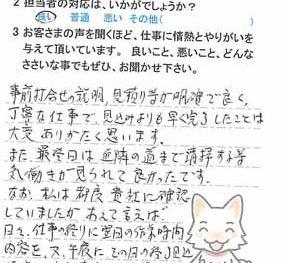 2 担当者の対応は、いかがでしょうか?
良い 普通 悪い その他( )
3 お客さまの声を聞くほど、仕事に情熱とやりがいを
与えて頂いています。 良いこと、悪いこと、どんな
ささいな事でもぜひ、お聞かせ下さい。
事前打合せの説明,見積り等が明確で良く,
丁寧な仕事で,見込みよりも早く完了したことは
大変ありがたく思います.
また,最終日は近隣の道まで清掃する等
気働きが見られて良かったです.
なお,私は都度貴社に確認
していましたがあえて言えば
日々,仕事の終りに翌日の作業時間
内容を,又,午後に,その日の終了見込